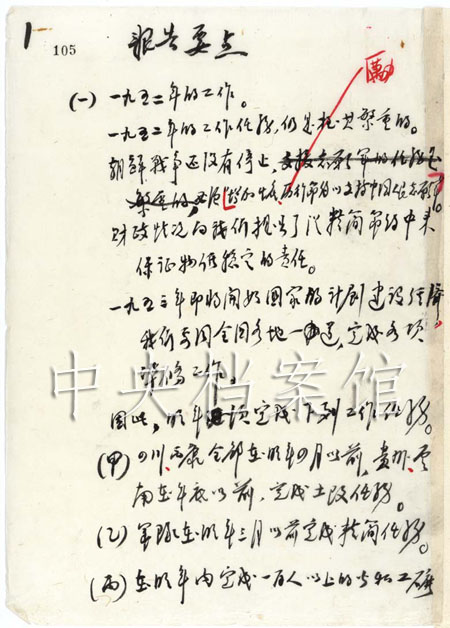 105
报告要点
(一) 一九五二年的工作。
一九五二年的工作任务,仍是极其繁重的。
朝鲜战争还没有停止,
财政状况向我们提出了从精简节约中来
保证物价稳定的责任。
一九五三年即将开始国家的计划建设经济
我们要同全国各地一道,完成各项
准备工作。
因此,明年必须完成下列工作任务。
(甲) 四川、西康全部在明年四月以前,贵州、云
南在年底以前,完成土改任务。
(乙) 军队在明年三月以前完成精简任务。
(丙) 在明年内完成一百人以上的公私工矿
中央档案馆